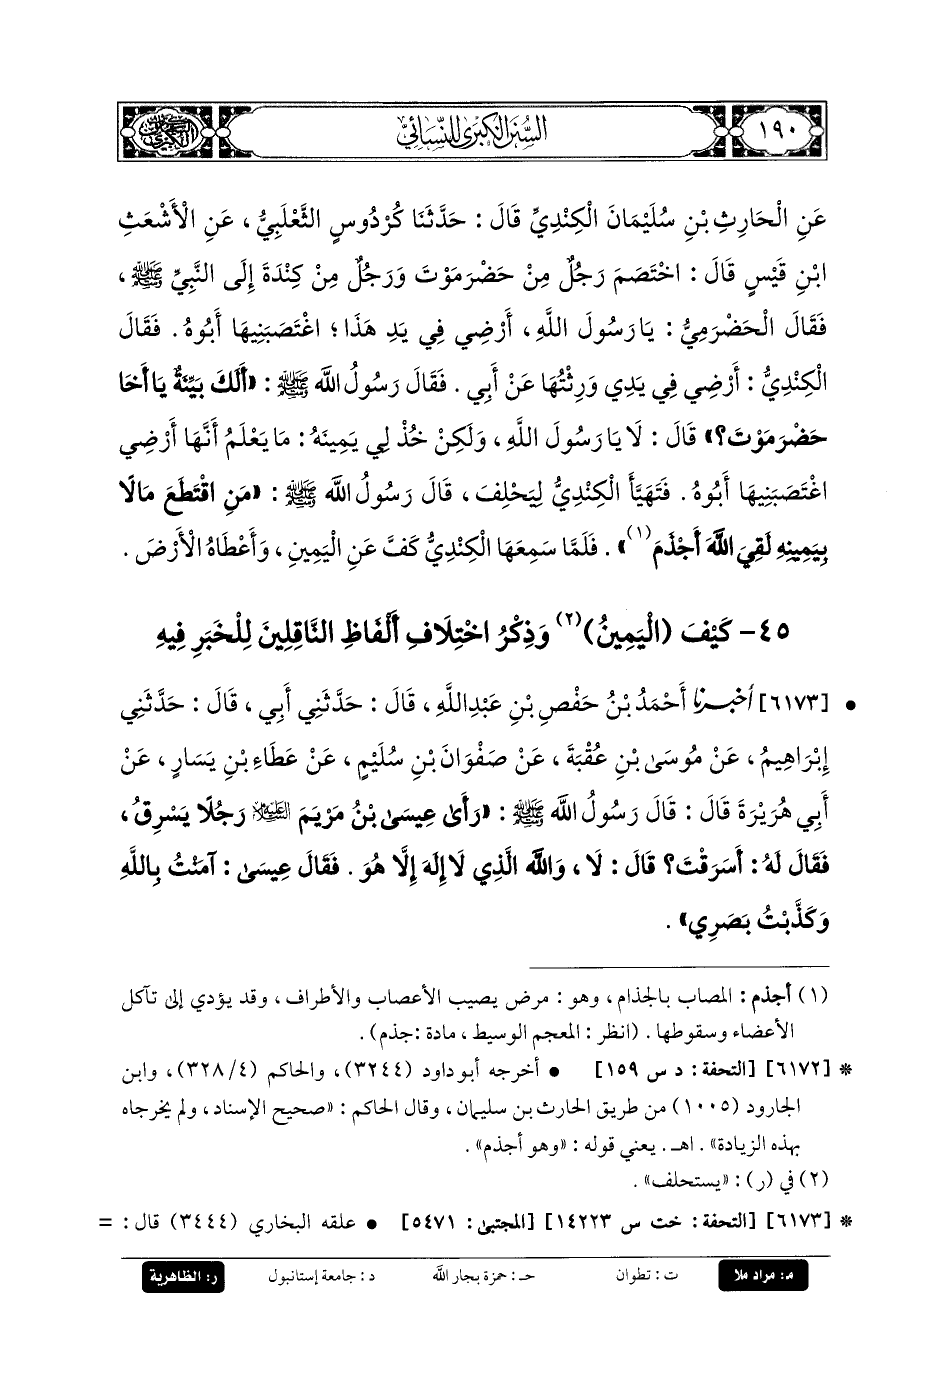 ١٩٠
السنن الكبرى للنسائي
عَنِ الْحَارِثِ بْنِ سُلَيْمَانَ الْكِنْدِيِّ قَالَ : حَدَّثَنَا كُرْدُوسٍ الثَّعْلَبِيُّ ، عَنِ الْأَشْعَثِ
ابْنِ قَيْسٍ قَالَ : اخْتَصَمَ رَجُلٌ مِنْ حَضْرَمَوْتَ وَرَجُلٌ مِنْ كِنْدَةَ إِلَى النَّبِيِّ ﷺ ،
فَقَالَ الْحَضْرَمِيُّ : يَا رَسُولَ اللَّهِ ، أَرْضِي فِي يَدِ هَذَا ؛ اغْتَصَبَنِيهَا أَبُوهُ . فَقَالَ
الْكِنْدِيُّ : أَرْضِي فِي يَدِي وَرِثْتُهَا عَنْ أَبِي . فَقَالَ رَسُولُ اللَّه ﷺ : «أَلَكَ بَيِّنَةٌ يَا أَخَا
حَضْرَمَوْتَ؟» قَالَ : لَا يَا رَسُولَ اللَّهِ ، وَلَكِنْ خُذْ لِي يَمِينَهُ : مَا يَعْلَمُ أَنَّهَا أَرْضِي
اغْتَصَبَنِيهَا أَبُوهُ . فَتَهَيَّأَ الْكِنْدِيُّ لِيَحْلِفَ ، قَالَ رَسُولُ اللَّه ﷺ : «مَنِ اقْتَطَعَ مَالًا
بِيَمِينِهِ لَقِيَ اللَّهَ أَجْذَمَ(١)» . فَلَمَّا سَمِعَهَا الْكِنْدِيُّ كَفَّ عَنِ الْيَمِينِ ، وَأَعْطَاهُ الْأَرْضَ .
٤٥- كَيْفَ (الْيَمِينُ)(٢) وَذِكْرُ اخْتِلَافِ أَلْفَاظِ النَّاقِلِينَ لِلْخَبَرِ فِيهِ
• [٦١٧٣] أخبرنا أَحْمَدُ بْنُ حَفْصِ بْنِ عَبْدِ اللَّهِ ، قَالَ : حَدَّثَنِي أَبِي ، قَالَ : حَدَّثَنِي
إِبْرَاهِيمُ ، عَنْ مُوسَى بْنِ عُقْبَةَ ، عَنْ صَفْوَانَ بْنِ سُلَيْمٍ ، عَنْ عَطَاءِ بْنِ يَسَارٍ ، عَنْ
أَبِي هُرَيْرَةَ قَالَ : قَالَ رَسُولُ اللَّه ﷺ : «رَأَى عِيسَى بْنُ مَرْيَمَ عليه السلام رَجُلًا يَسْرِقُ ،
فَقَالَ لَهُ : أَسَرَقْتَ؟ قَالَ : لَا ، وَاللَّهِ الَّذِي لَا إِلَهَ إِلَّا هُوَ . فَقَالَ عِيسَى : آمَنْتُ بِاللَّهِ
وَكَذَّبْتُ بَصَرِي» .
(١) أجذم : المصاب بالجذام ، وهو : مرض يصيب الأعصاب والأطراف ، وقد يؤدي إلى تآكل
الأعضاء وسقوطها . (انظر : المعجم الوسيط ، مادة :جذم) .
* [٦١٧٢] [التحفة : د س ١٥٩] • أخرجه أبو داود (٣٢٤٤) ، والحاكم (٣٢٨/٤) ، وابن
الجارود (١٠٠٥) من طريق الحارث بن سليمان ، وقال الحاكم : «صحيح الإسناد ، ولم يخرجاه
بهذه الزيادة» . اهـ. يعني قوله : «وهو أجذم» .
(٢) في (ر) : «يستحلف» .
* [٦١٧٣] [التحفة : خت س ١٤٢٢٣] [المجتبى : ٥٤٧١] • علقه البخاري (٣٤٤٤) قال : =
م: مراد ملا ت : تطوان حـ : حمزة بجار الله د : جامعة إستانبول ر: الظاهرية